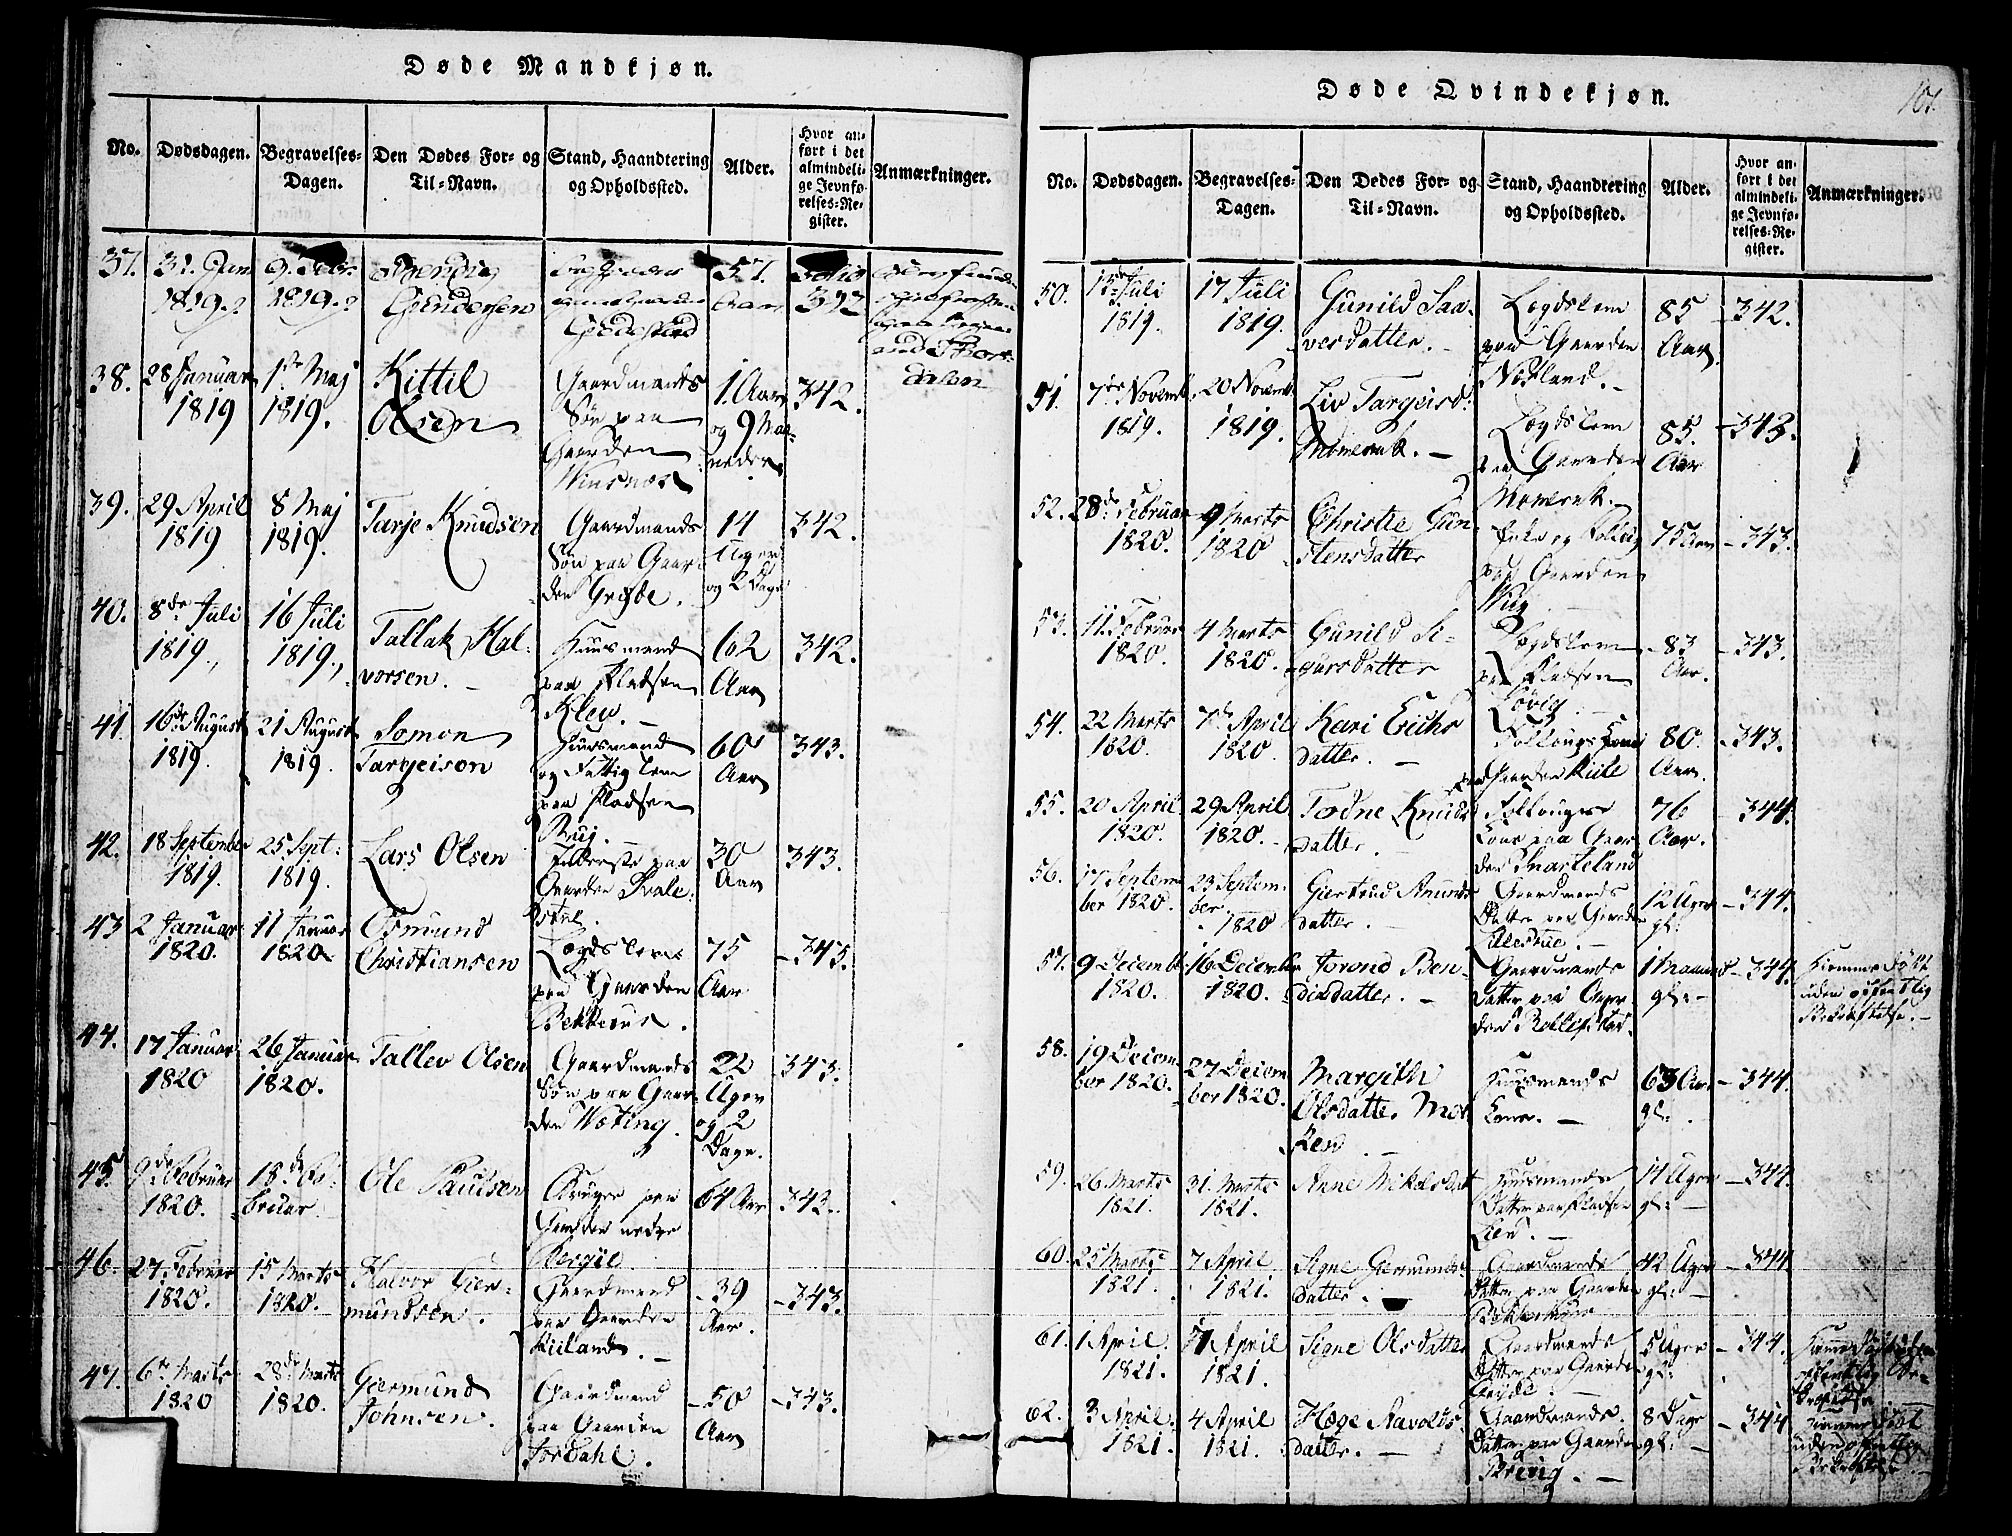 Døde Mandkjøn.
No. Dødsdagen. Begravelses-Dagen. Den Dødes For- og Til-Navn. Stand, Haandtering og Opholdssted. Alder. Hvor anført i det almindelige Jevnførelses-Register. Anmærkninger.
37. 31. Jan 1819 9. Febr. 1819 Gundersen 57. Aar
38. 28 Januar 1819 1ste Maj 1819. Kittil Olsen Gaardmands Søn paa Gaarden Winsnes 1. Aar og 9 Maaneder 342.
39. 29 April 1819 8 Maj 1819. Tarje Knudsen Gaardmands Søn paa Gaarden Greibe. 14 Uger og 2 Dage 342.
40. 8de Juli 1819. 16 Juli 1819. Tallak Halvorsen. Huusmand paa Pladsen Klev. 62 Aar 342.
41. 16de August 1819. 21 August 1819. Somon Targeison Huusmand og Fattiglem paa Pladsen Ruj. 60 Aar 343.
42. 18 September 1819. 25 Sept: 1819. Lars Olsen Inderste paa Gaarden 30 Aar 343.
43 2 Januar 1820. 11 Januar 1820 Osmund Christiansen Lægdslem paa Gaarden Bekkhuus. 75 Aar 343.
44. 17 Januar 1820 26 Januar 1820. Tallev Olsen Gaardmands Søn paa Gaarden 22 Uger og 2 Dage. 343.
45. 9de Februar 1820. 18de Februar. Ole Paulsen paa Gaarden nedre 64 Aar 343.
46. 27 Februar 1820. 15 Marts 1820. Halvor Giermundsen. Gaardmand paa Gaarden Kiiland. 39 Aar. 343.
47. 6te Marts 1820 28de Marts 1820. Giermund Johnsen. Gaardmand paa Gaarden Jordahl. 50 Aar 343.
Døde Qvindekjøn.
101.
No. Dødsdagen. Begravelses-Dagen. Den Dødes For- og Til-Navn. Stand, Haandtering og Opholdssted. Alder. Hvor anført i det almindelige Jevnførelses-Register. Anmærkninger.
50. 15de Juli 1819. 17 Juli 1819. Gunild Saavesdatter. Lægdslem paa Gaarden 85 Aar. 342.
51. 7de Novemb 1819. 20 Novemb 1819. Liv Targeisd: Lægdslem paa Gaarden 85. Aar 343.
52. 28de Februar 1820. 9 Marts 1820 Christie Gunstensdatter Enke paa Gaarden 75 Aar 343.
53. 11. Februar 1820. 4 Marts 1820. Gunild Sigursdatter Lægdslem paa Pladsen 83 Aar. 343.
54. 22 Marts 1820. 7de April 1820 Kari Erichsdatter. paa Gaarden Kiile 80. Aar. 343.
55. 20 April 1820. 29 April 1820. Todne Knudsdatter. Kone paa Gaarden 76 Aar. 344.
56. 17 September 1820. 23 September 1820 Giertrud Amundsdatter. Gaardmands Datter paa Gaarden 12 Uger gl: 344.
57. 9 Decembr 1820. 16 December 1820. Torond Bendixdatter. Gaardmands Datter paa Gaarden 1 Maaned gl: 344. Hiemmedøbt uden offentlig Bekræftelse.
58. 19 December 1820. 27 December 1820. Margith Olsdatter Huusmands Kone. 63 Aar gl: 344.
59. 26 Marts 1821. 31. Marts 1821. Anne Nikolsdat Huusmands Datter paa Pladsen Lien. 14 Uger gl: 344
60. 25 Marts 1821. 7 April 1821. Signe Giermundsdatter. Gaardmands Datter paa Gaarden 42 Uger gl: 344
61. 1 April. 1821. 7 April 1821. Signe Olsdatter Gaardmands Datter paa Gaarden 5 Uger gl: 344.
62. 3 April. 1821. 4 April 1821. Høge Aavoldsdatter. Gaardmands Datter paa Gaarden 8 Dage gl: 344 Hiemmedøbt uden offentlig Bekræftelse.